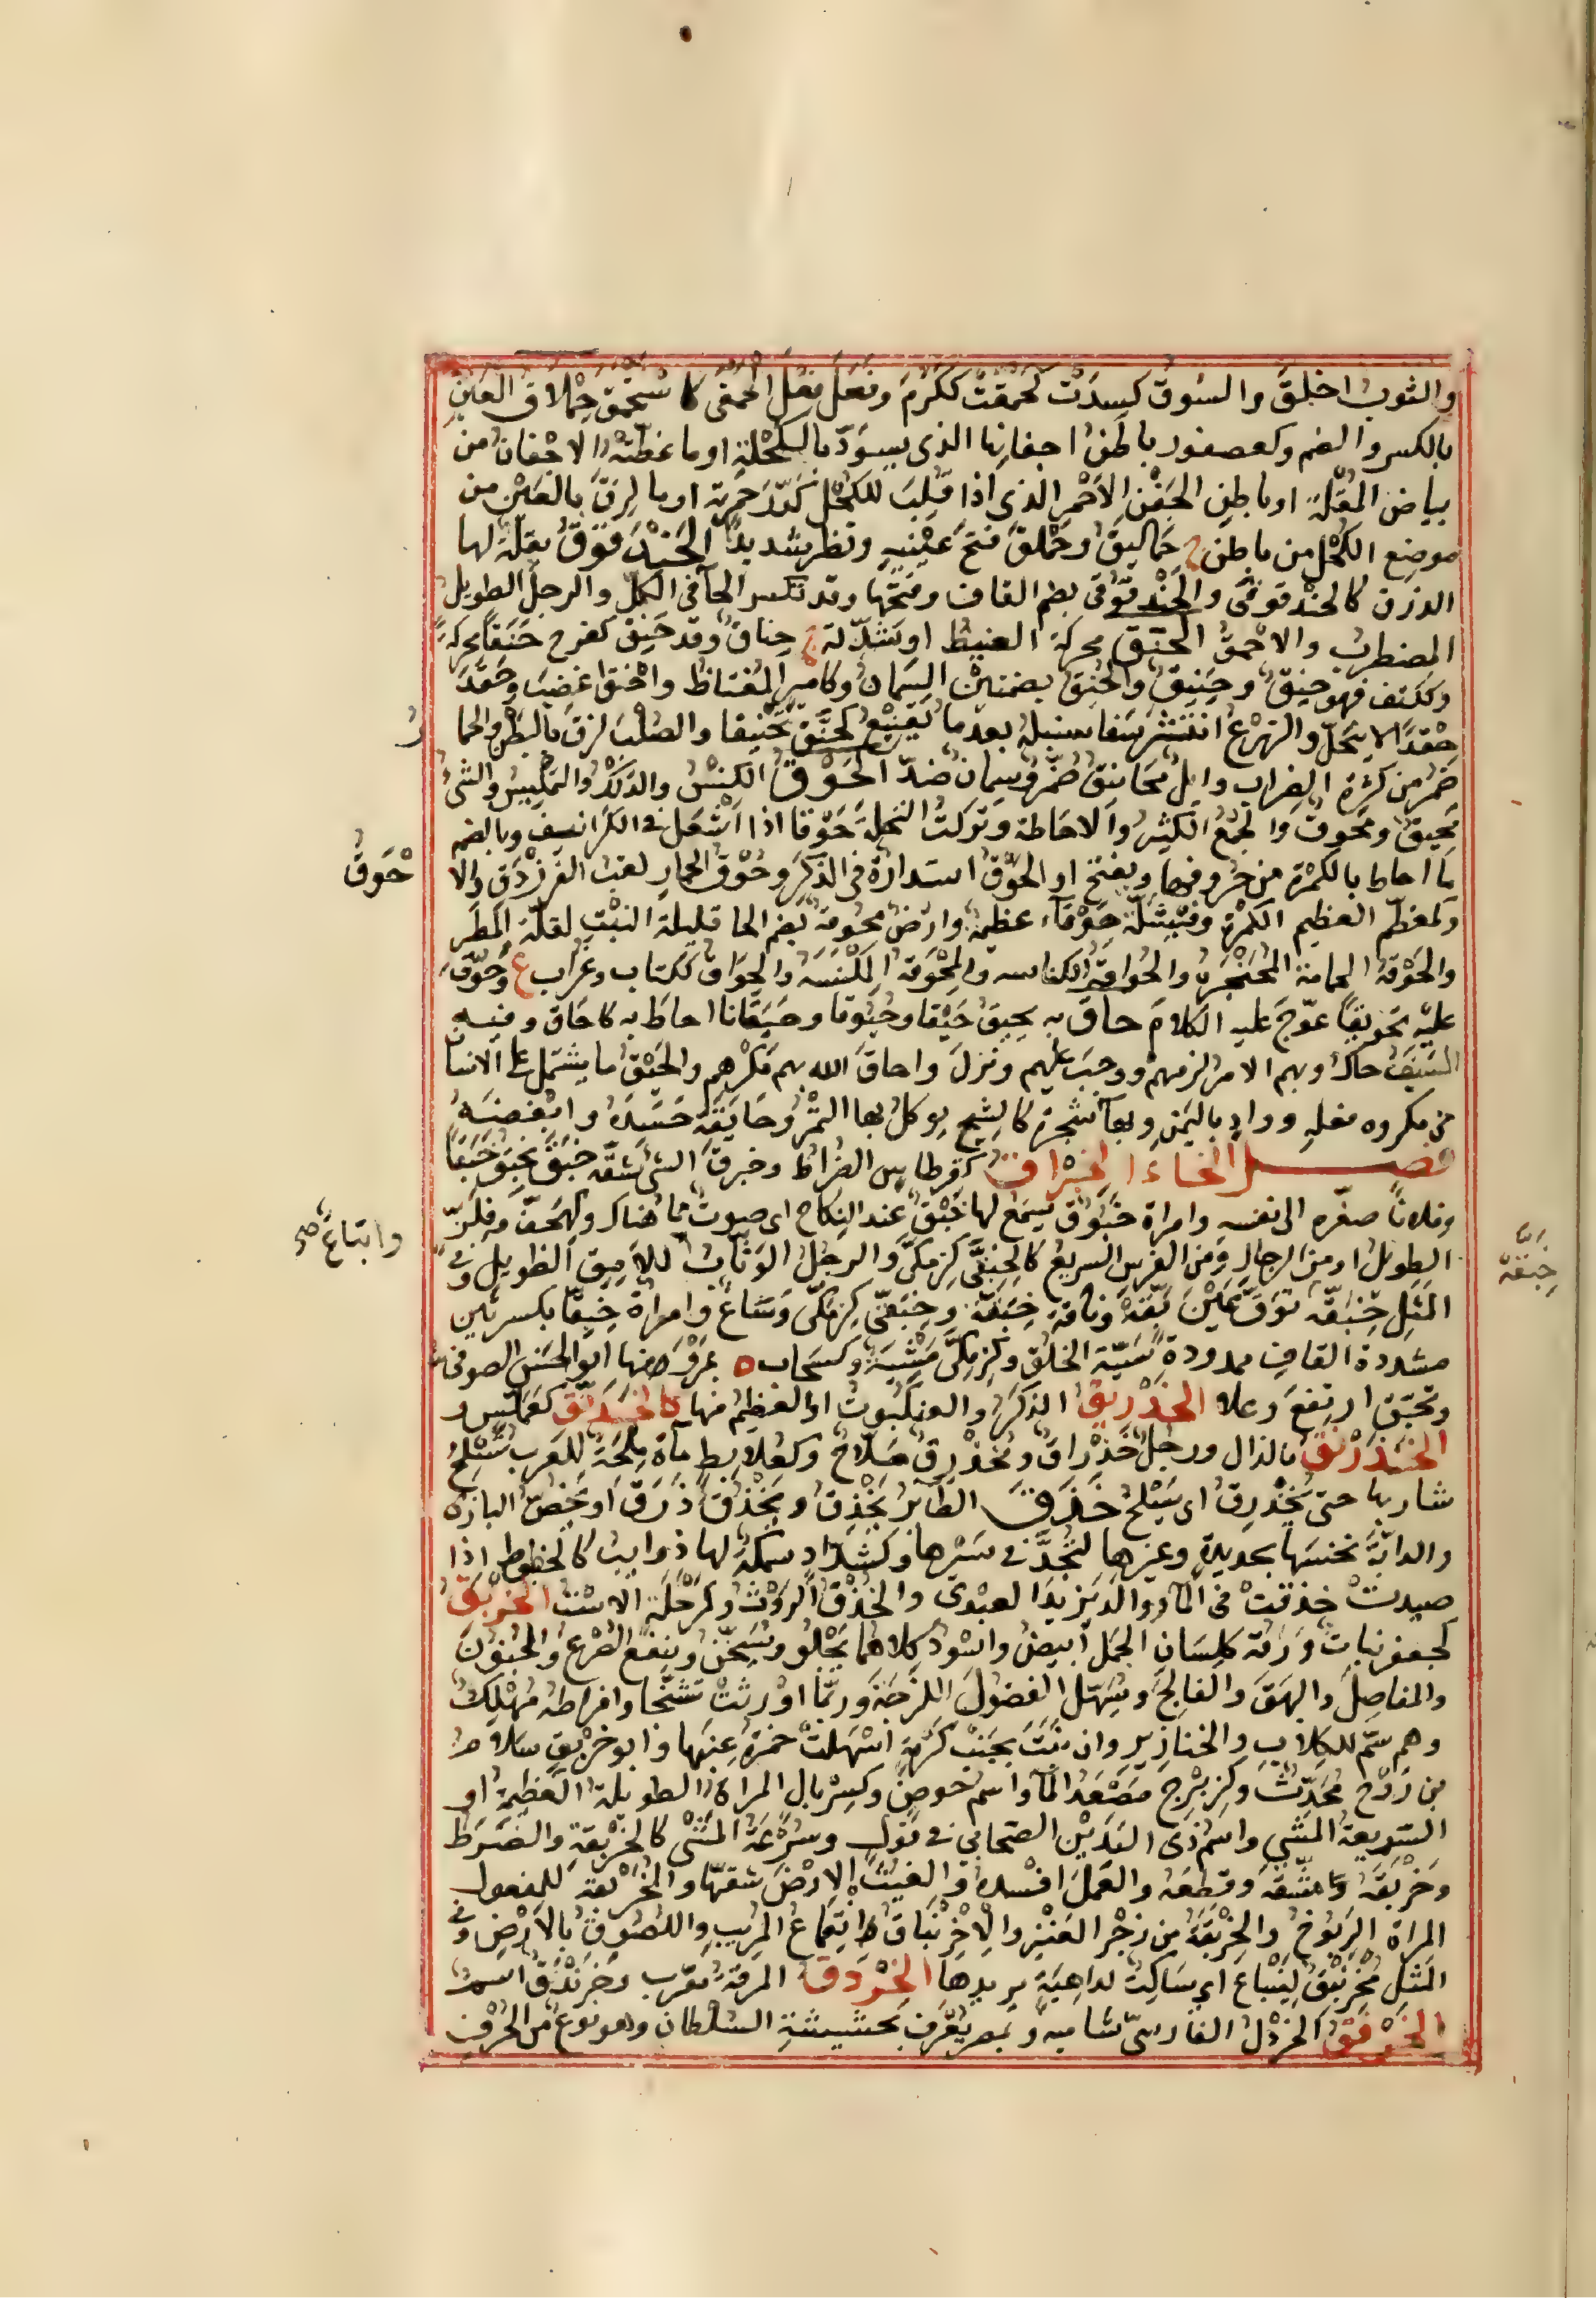 والثوبُ اخلقَ والسوقُ كسدَت كحمقت ككرُمَ وفعَل فعلَ الحمقى كاستحمق حِملاقُ العَينِ
بالكسر والضم وكعصفور باطنُ اجفانِها الذي يسوّدُ بالكُحلةِ او ما غطّته الاجفانُ من
بياض المقلةِ او باطن الجَفنِ الاحمرِ الذي اذا قُلِبَ للكحل حَمرته او ما لزِقَ بالعَين من
موضع الكُحل من باطن ج حماليقُ وحَملقَ فتحَ عينَيهِ ونظر شديدًا الحَندَقوقُ بقلةٌ لها
الذرق كالحندقوقى والحندقوقى بضم القاف وفتحها وقد تكسر الحآ في الكلّ والرجل الطويل
المضطرب والاحمق الحَنَق محركة الغيظ او شدّته ج حِناق وقد حَنِقَ كفرح حَنَقًا محركةً
وككتف فهو حنِقٌ وحَنيقٌ والحُنُق بضمتين السِمان وكامير المغتاظ واحنق اغضبَ وحقدَ
حقدًا لا ينحلّ والزرعُ انتشر سفا سنبله بعدما يقنبعُ كحنّقَ تحنيقا والصُلبُ لزق بالبطن والحما رُ
ضَمُر من كثرة الضراب وابلٌ محانيق ضُمّر وسِمان ضدّ الحَوقُ الكنسُ والدلكُ والتمليس والشئ
مَحيقٌ ومَحوق والجمعُ الكثير والاحاطة وتركتُ النخلة حَوقا اذا اشعل في الكرانيف وبالضم
ما احاط بالكمرة من حروفها ويفتح او الحُوق استدارة في الذكر وحُوق الحِمارِ لقب الفرزدق والا حْوَقُ
وكمعظّم العظيم الكَمرة وفيشلة حَوقآء عظيمةٌ وارضٌ محوقة بضم الحا قليلة النبْتِ لقلة المطَرِ
والحَوقة الجماعة المُمخرقة والحُواقة الكناسه والمِحوقة المكنسَة والحُِواق ككتاب وغراب ع وحوّق
عليه تحويقًا عوّج عليه الكلامَ حاقَ به يحيقُ حَيقا وحُيُوقا وحَيَقانا احاط به كاحاق وفيه
السَيفُ حاك وبهم الامر لزمهم ووجبَ عليهم ونزل واحاق الله بهم مَكرهم والحَيقُ ما يشتمل على الانسان
من مكروه فعلهِ ووادٍ باليَمَن وبهآ شجرة كالشيح يوكل بها التمر وحايقَه حَسَدَه وابغضه
فصل الخاء الخبراق كقرطاس الضراط وخبرقَ الشئ شقه خبَقَ يخبِقُ خَبقًا
وفلانًا صغّره الى نفسه وامراة خَبُوق يُسمَع لها خَبقٌ عند النِكاح اى صوتٌ مما هناك وكهِجَفّ وفِلزّ
الطويلُ او من الرجال ومن الفرس السريع كالخِبِقّى كزِمِكّى والرجلُ الوَثّابُ كلامِيق الطويل وفي
المثل خِبَقّة خِبَقّة تَوَقّ عَيْنَ بَقّة وناقة خِبَقّة وخِبِقّى كزِمِكّى وَسَاعٌ وامراة خِبِقّا بكسرتين وابتاعٌ صح
مشددة القاف ممدودة سَيّئة الخلق وكزِمِكّى مَشيَة وكسَحاب ة بمَرْو منها ابو الحسن الصوفي
وتخبّق ارتفعَ وعلا الخَدَرْنَقُ الذكَرُ والعنكبوتُ او العظيمُ منها كالخَدَرّق كعَمَلّس و
الخَذَرْنَقُ بالذال ورجلٌ خِذراق ومُخَذرِق سَلّاحٌ وكعُلابِط ماءةٌ مِلحة للعرب يَسلحُ
شاربها حتى يُخَذرِقُ اى يَسلح خذقَ الطائرُ يَخْذِقُ ويَخذُقُ ذرَقَ او يَخُصّ البازَه
والدابّة نخسَها بحديدةٍ وغيرها لتجُدَّ في سَيرها وكشدّاد سمكةٌ لها ذوايب كالخيوط اذا
صِيدتْ خذقتْ في المآ ووالد يزيدَ العبديّ والخَذقُ الرَوْث وكمَرحَلة الاسْت الخَرْبَقُ
كجعفر نبات ورقه كلِسَان الجمل ابيضُ واسودُ كلاهما يَجلو ويُسَخّن وينفع الصَرعَ والجنونَ
والمفاصلَ والبهَق والفالجَ ويُسَهّل الفضولَ اللزجَة وربّما اورثَتْ تشنّجا وافراطه مُهلِك
وهو سمّ للكلاب والخنازير وان نبَتَ بجَنْبِ كَرمةٍ اسْهلتْ خمرةُ عِنبها وابو خَربَقٍ سَلامة
بن رَوْح محَدّث وكزِبرِج مَصْعَد المآ واسم حوضٍ وكسِربال المراة الطويلة العظيمة او
السريعة المشي واسم ذى اليدَيْن الصحابى في قول وسُرعَة المَشْى كالخَربَقة والضَرط
وخَربَقَه شقّه وقطعَه والعَمَلَ افسده والغيثُ الارضَ شققها والمُخَربَقة للمفعول
المراة الربوخ والخَربَقَة من زجر العَنز والاخرنباق انقماع المُريب واللصوق بالارض وفي
المثل مُخرَنبِقٌ لِيَنباعَ اى سَاكتٌ لداهيَةٍ يريدها الخُردَق المرقة معرب وخَرَندَقٌ اسم
الخَرفَقُ الخردَل الفارسيّ شاميه وبمصر يُعرَف بحشيشةِ السُلطان وهو نوعٌ من الحُرف
خِبَقّة